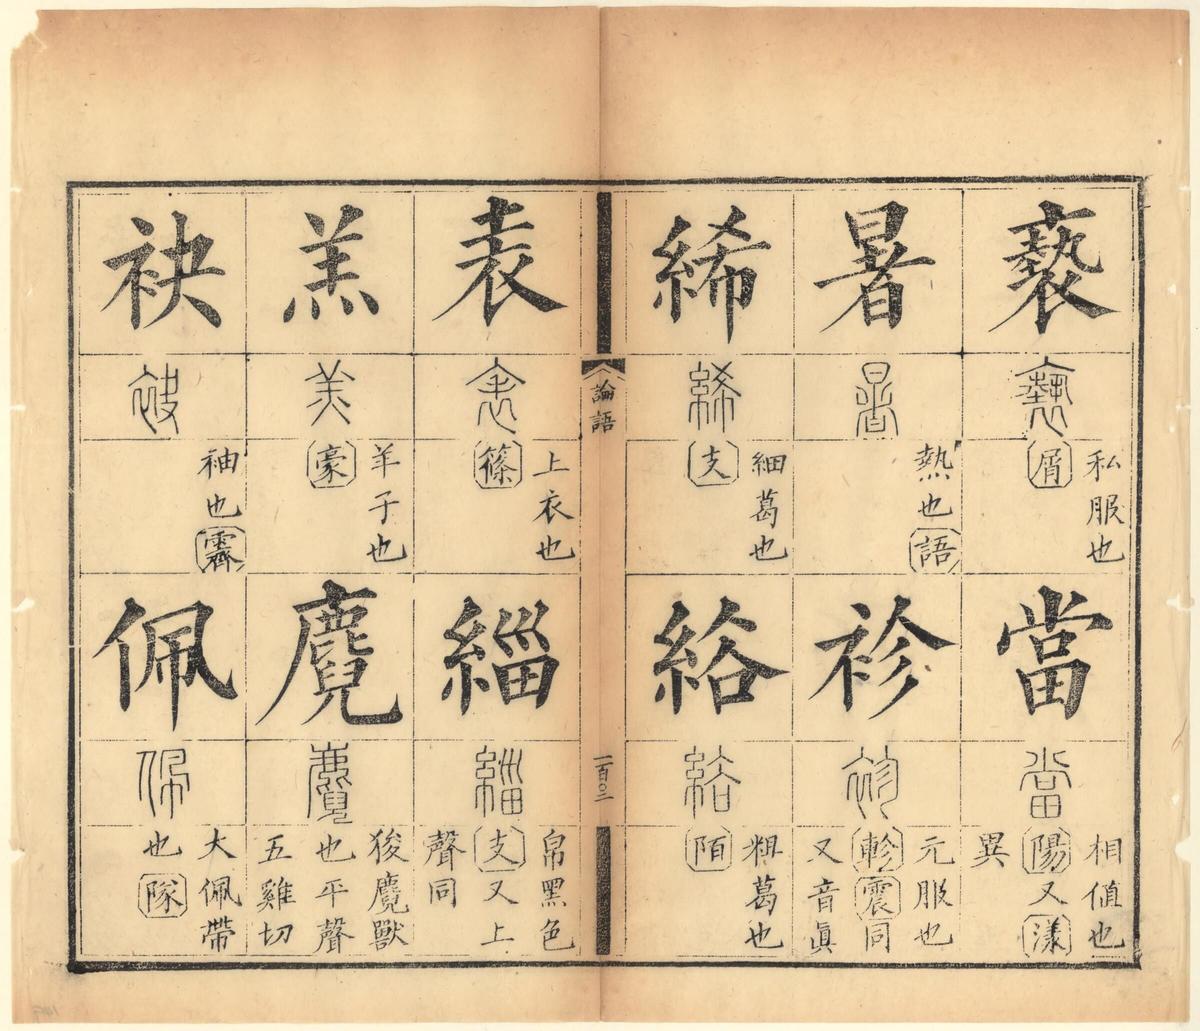 褻
褻
私服也
屑
當
當
相值也
陽又漾
異
暑
暑
熱也語
袗
袗
元服也
軫震同
又音眞
絺
絺
細葛也
支
綌
綌
粗葛也
陌
論語
一百〇二
表
表
上衣也
篠
緇
緇
帛黑色
支又上
聲同
羔
羔
羊子也
豪
麑
麑
狻麑獸
也平聲
五雞切
袂
袂
袖也霽
佩
佩
大佩帶
也隊